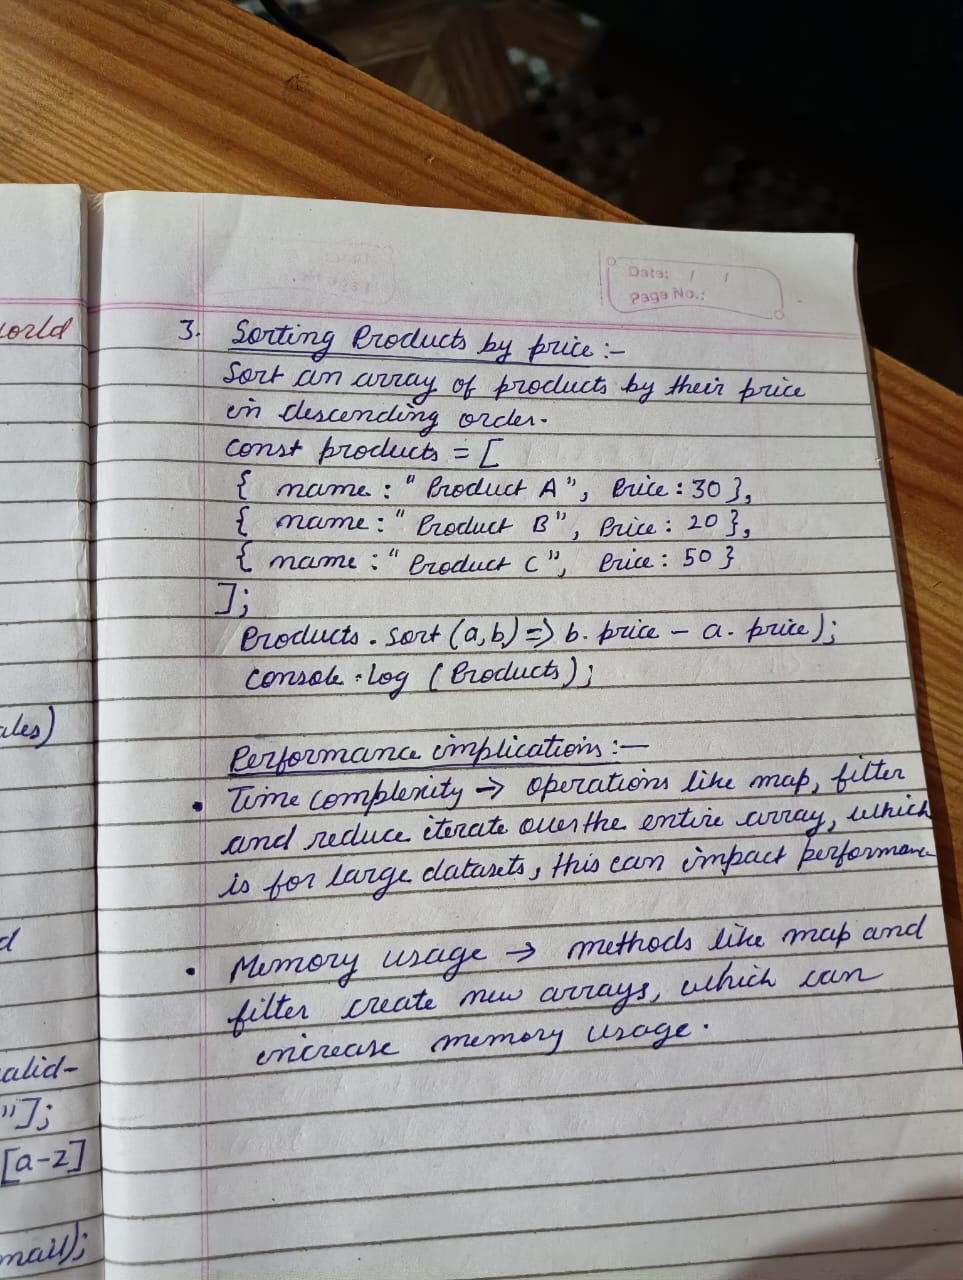 world
ales)
d
alid-
"];
[a-z]
mail);
Date: / /
Page No.:
3. Sorting Products by price :-
Sort an array of products by their price
in descending order.
const products = [
{ name : " Product A ", Price : 30 },
{ name : " Product B ", Price : 20 },
{ name : " Product C ", Price : 50 }
];
Products . sort (a,b) => b. price - a. price);
console . log ( Products ) ;
Performance implications :-
• Time complexity → operations like map, filter
and reduce iterate over the entire array, which
is for large datasets, this can impact performance
• Memory usage → methods like map and
filter create new arrays, which can
increase memory usage .